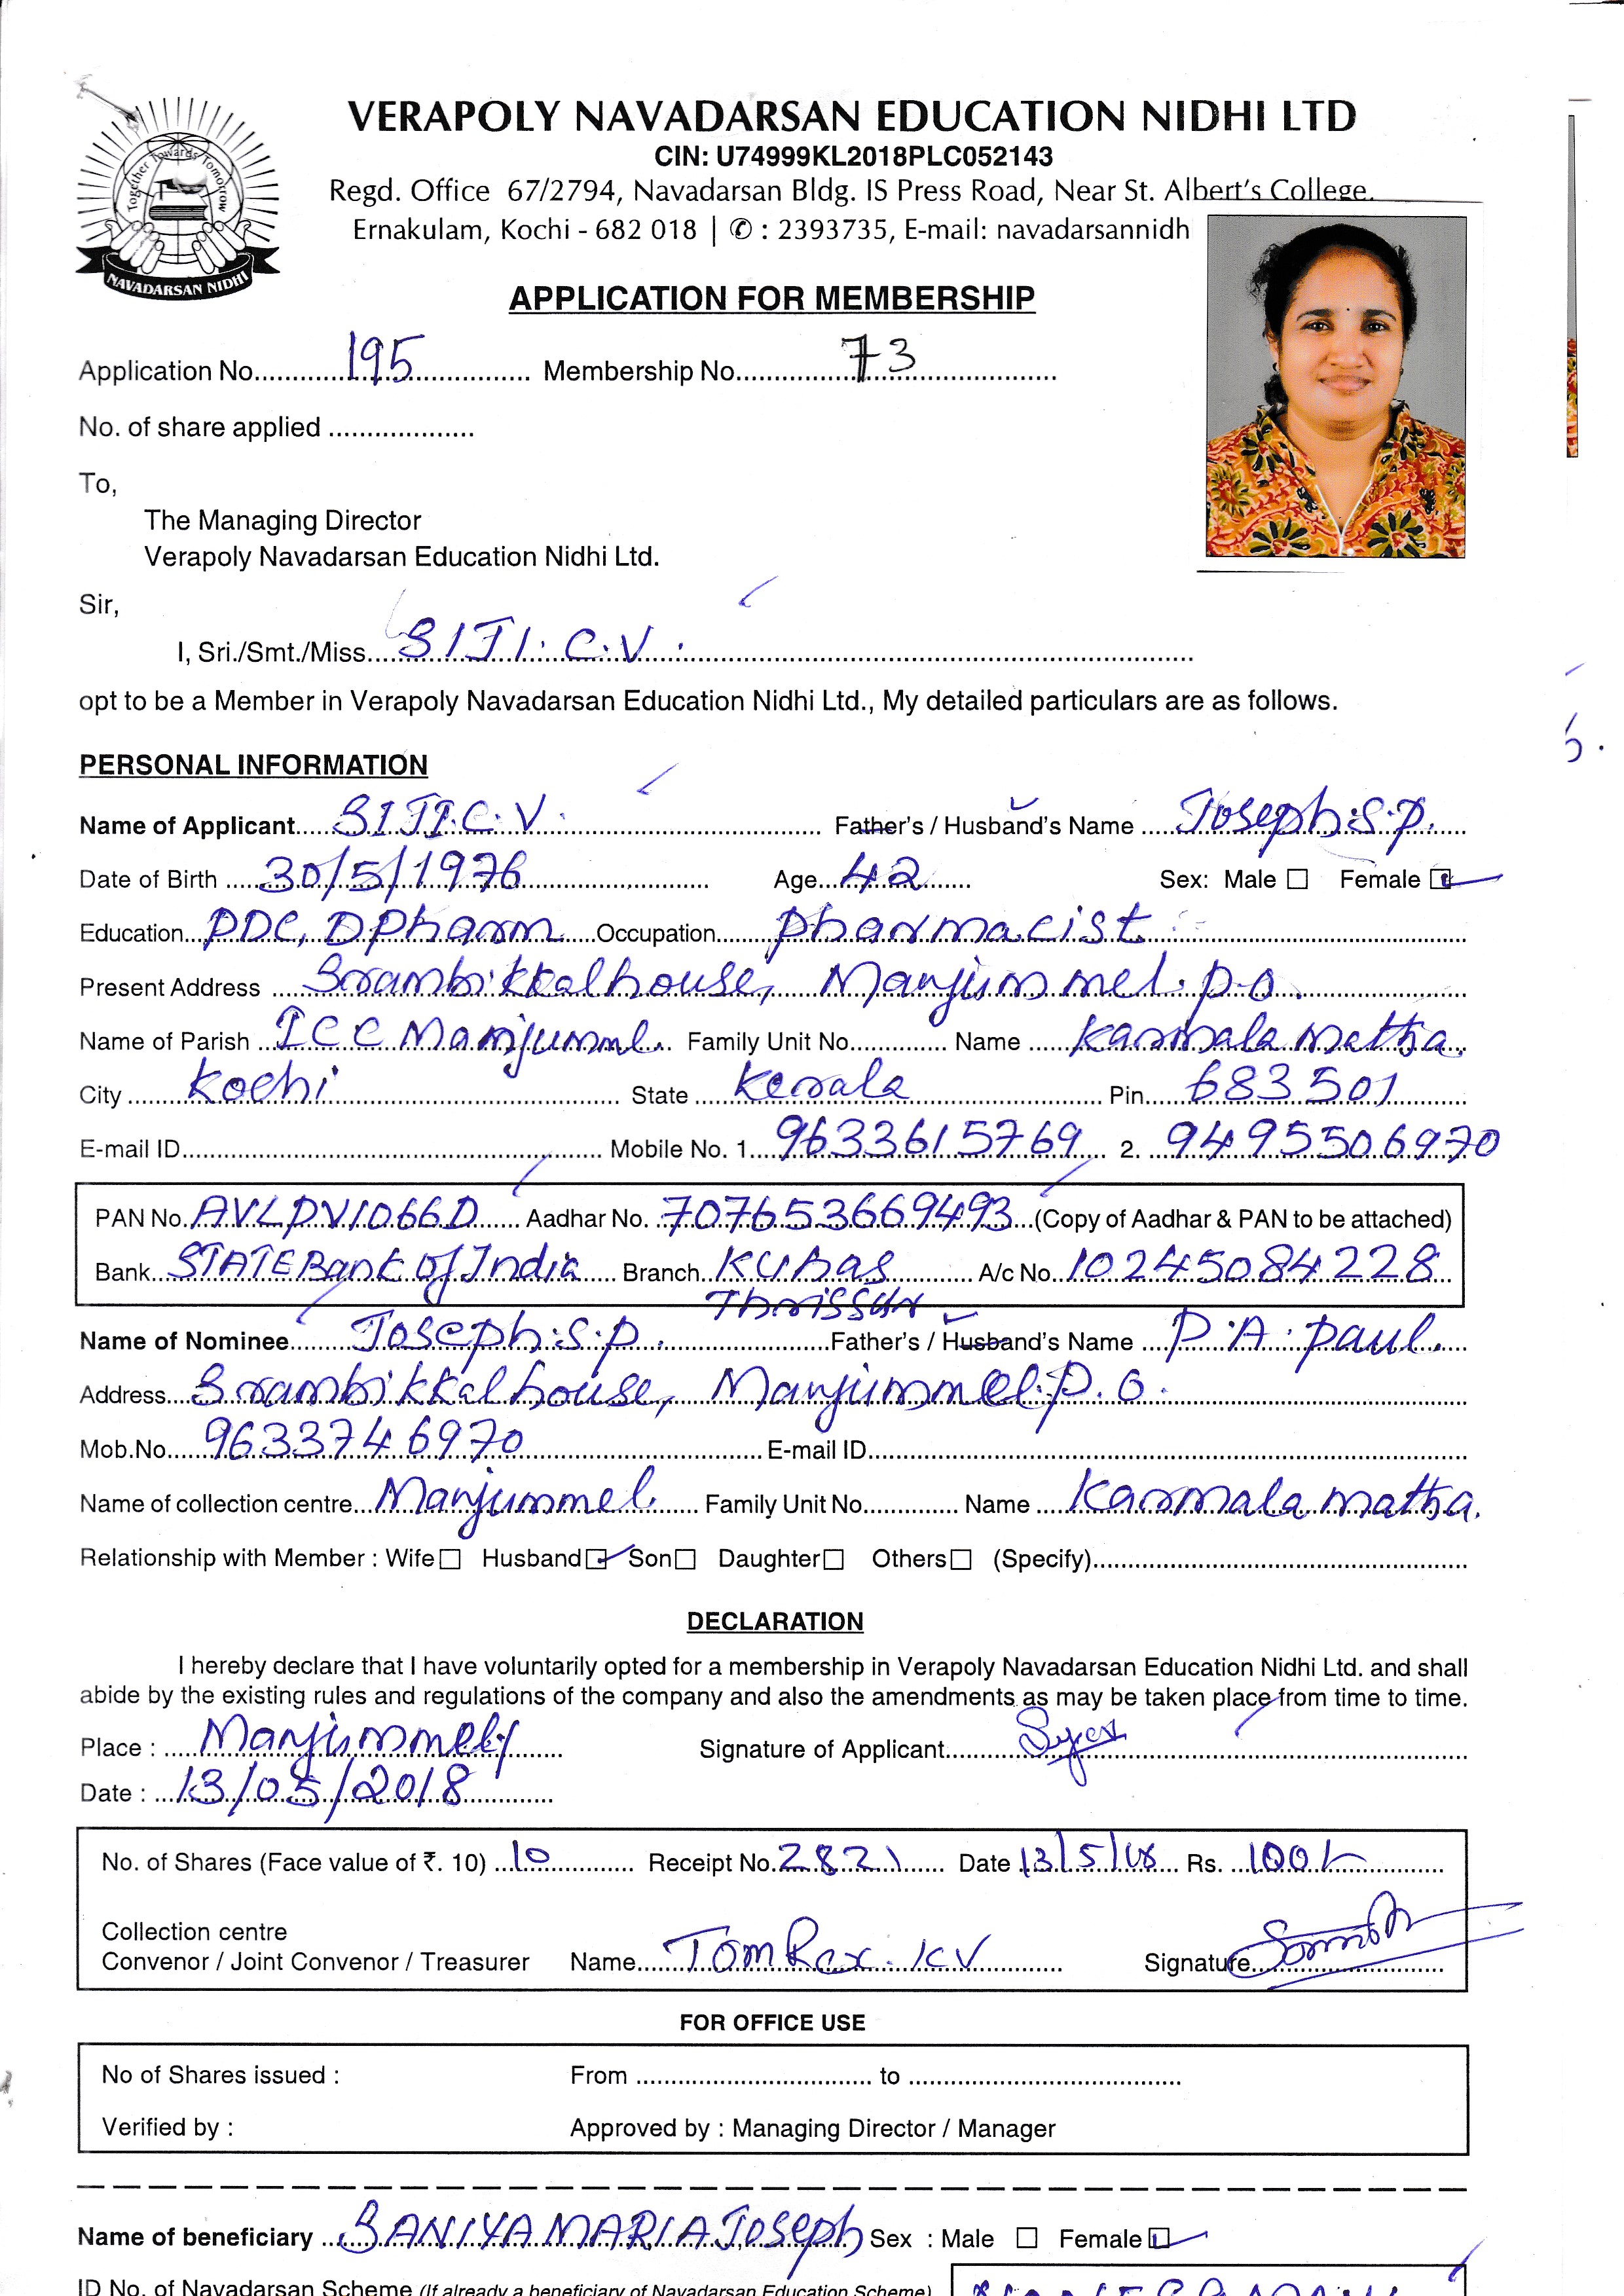 VERAPOLY NAVADARSAN EDUCATION NIDHI LTD
CIN: U74999KL2018PLC052143
Regd. Office 67/2794, Navadarsan Bldg. IS Press Road, Near St. Albert's College.
Ernakulam, Kochi - 682 018 | ✆ : 2393735, E-mail: navadarsannidh
Together Towards Tomorrow
NAVADARSAN NIDHI
APPLICATION FOR MEMBERSHIP
Application No. 195 Membership No. 73
No. of share applied
To,
The Managing Director
Verapoly Navadarsan Education Nidhi Ltd.
Sir,
I, Sri./Smt./Miss. SIJI. C.V.
opt to be a Member in Verapoly Navadarsan Education Nidhi Ltd., My detailed particulars are as follows.
PERSONAL INFORMATION
Name of Applicant SIJI.C.V. Father's / Husband's Name Joseph.S.P.
Date of Birth 30/5/1976 Age 42 Sex: Male Female
Education PDC, DPharm Occupation pharmacist
Present Address Srambikkalhouse, Manjummel.P.O.
Name of Parish ICC Manjumml. Family Unit No. Name Karmala matha.
City Kochi State Kerala Pin 683501
E-mail ID Mobile No. 1. 9633615769 2. 9495506970
PAN No. AVLPV1066D Aadhar No. 707653669493 (Copy of Aadhar & PAN to be attached)
Bank STATE Bank of India Branch A/c No. 10245084228
Thrissur
Name of Nominee Joseph.S.P. Father's / Husband's Name P.A. paul.
Address Srambikkalhouse, Manjummel.P.O.
Mob.No. 9633746970 E-mail ID
Name of collection centre Manjummel. Family Unit No. Name Karmala matha.
Relationship with Member : Wife Husband Son Daughter Others (Specify)
DECLARATION
I hereby declare that I have voluntarily opted for a membership in Verapoly Navadarsan Education Nidhi Ltd. and shall
abide by the existing rules and regulations of the company and also the amendments as may be taken place from time to time.
Place : Manjummel Signature of Applicant
Date : 13/05/2018
No. of Shares (Face value of ₹. 10) 10 Receipt No. 2821 Date 13/5/18 Rs. 100/-
Collection centre
Convenor / Joint Convenor / Treasurer Name Tom Rex. KV Signature
FOR OFFICE USE
No of Shares issued : From to
Verified by : Approved by : Managing Director / Manager
Name of beneficiary SANIYA MARIA Joseph Sex : Male Female
ID No. of Navadarsan Scheme (If already a beneficiary of Navadarsan Education Scheme)